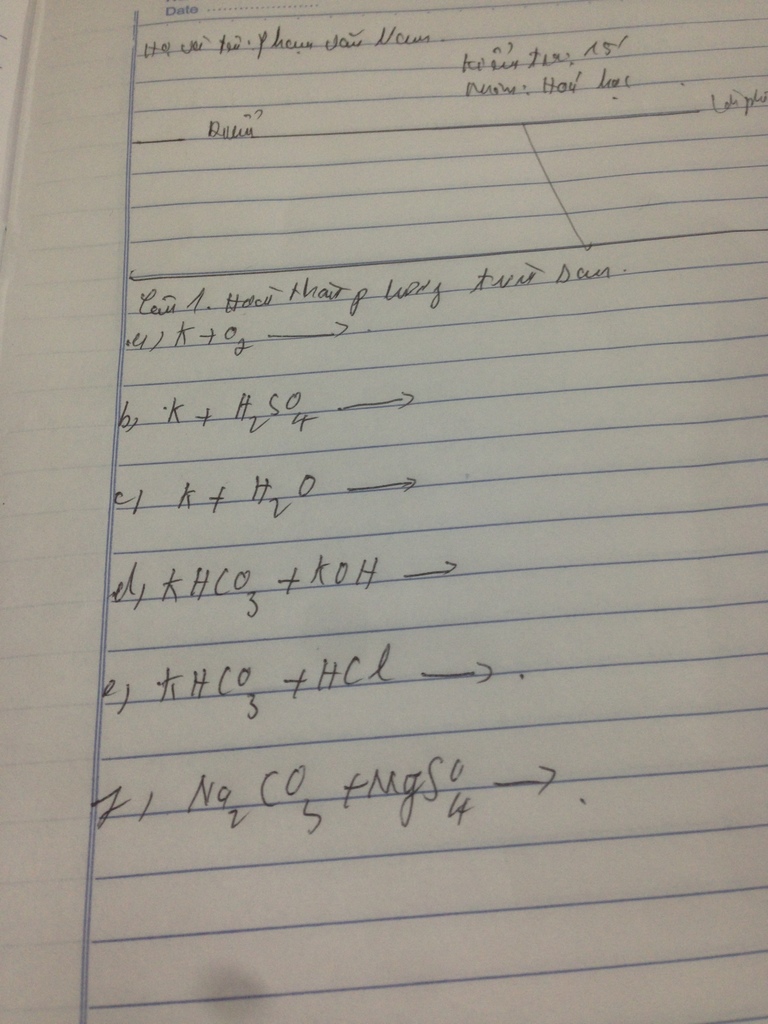 Date
Họ và tên: Phạm Văn Nam.
Kiểm tra: 15'
Môn: Hoá học
Điểm
Lời phê
Câu 1. Hoàn thành phương trình sau.
a) K + O₂ →
b) K + H₂SO₄ →
c) K + H₂O →
d) KHCO₃ + KOH →
e) KHCO₃ + HCl → .
f) Na₂CO₃ + MgSO₄ → .